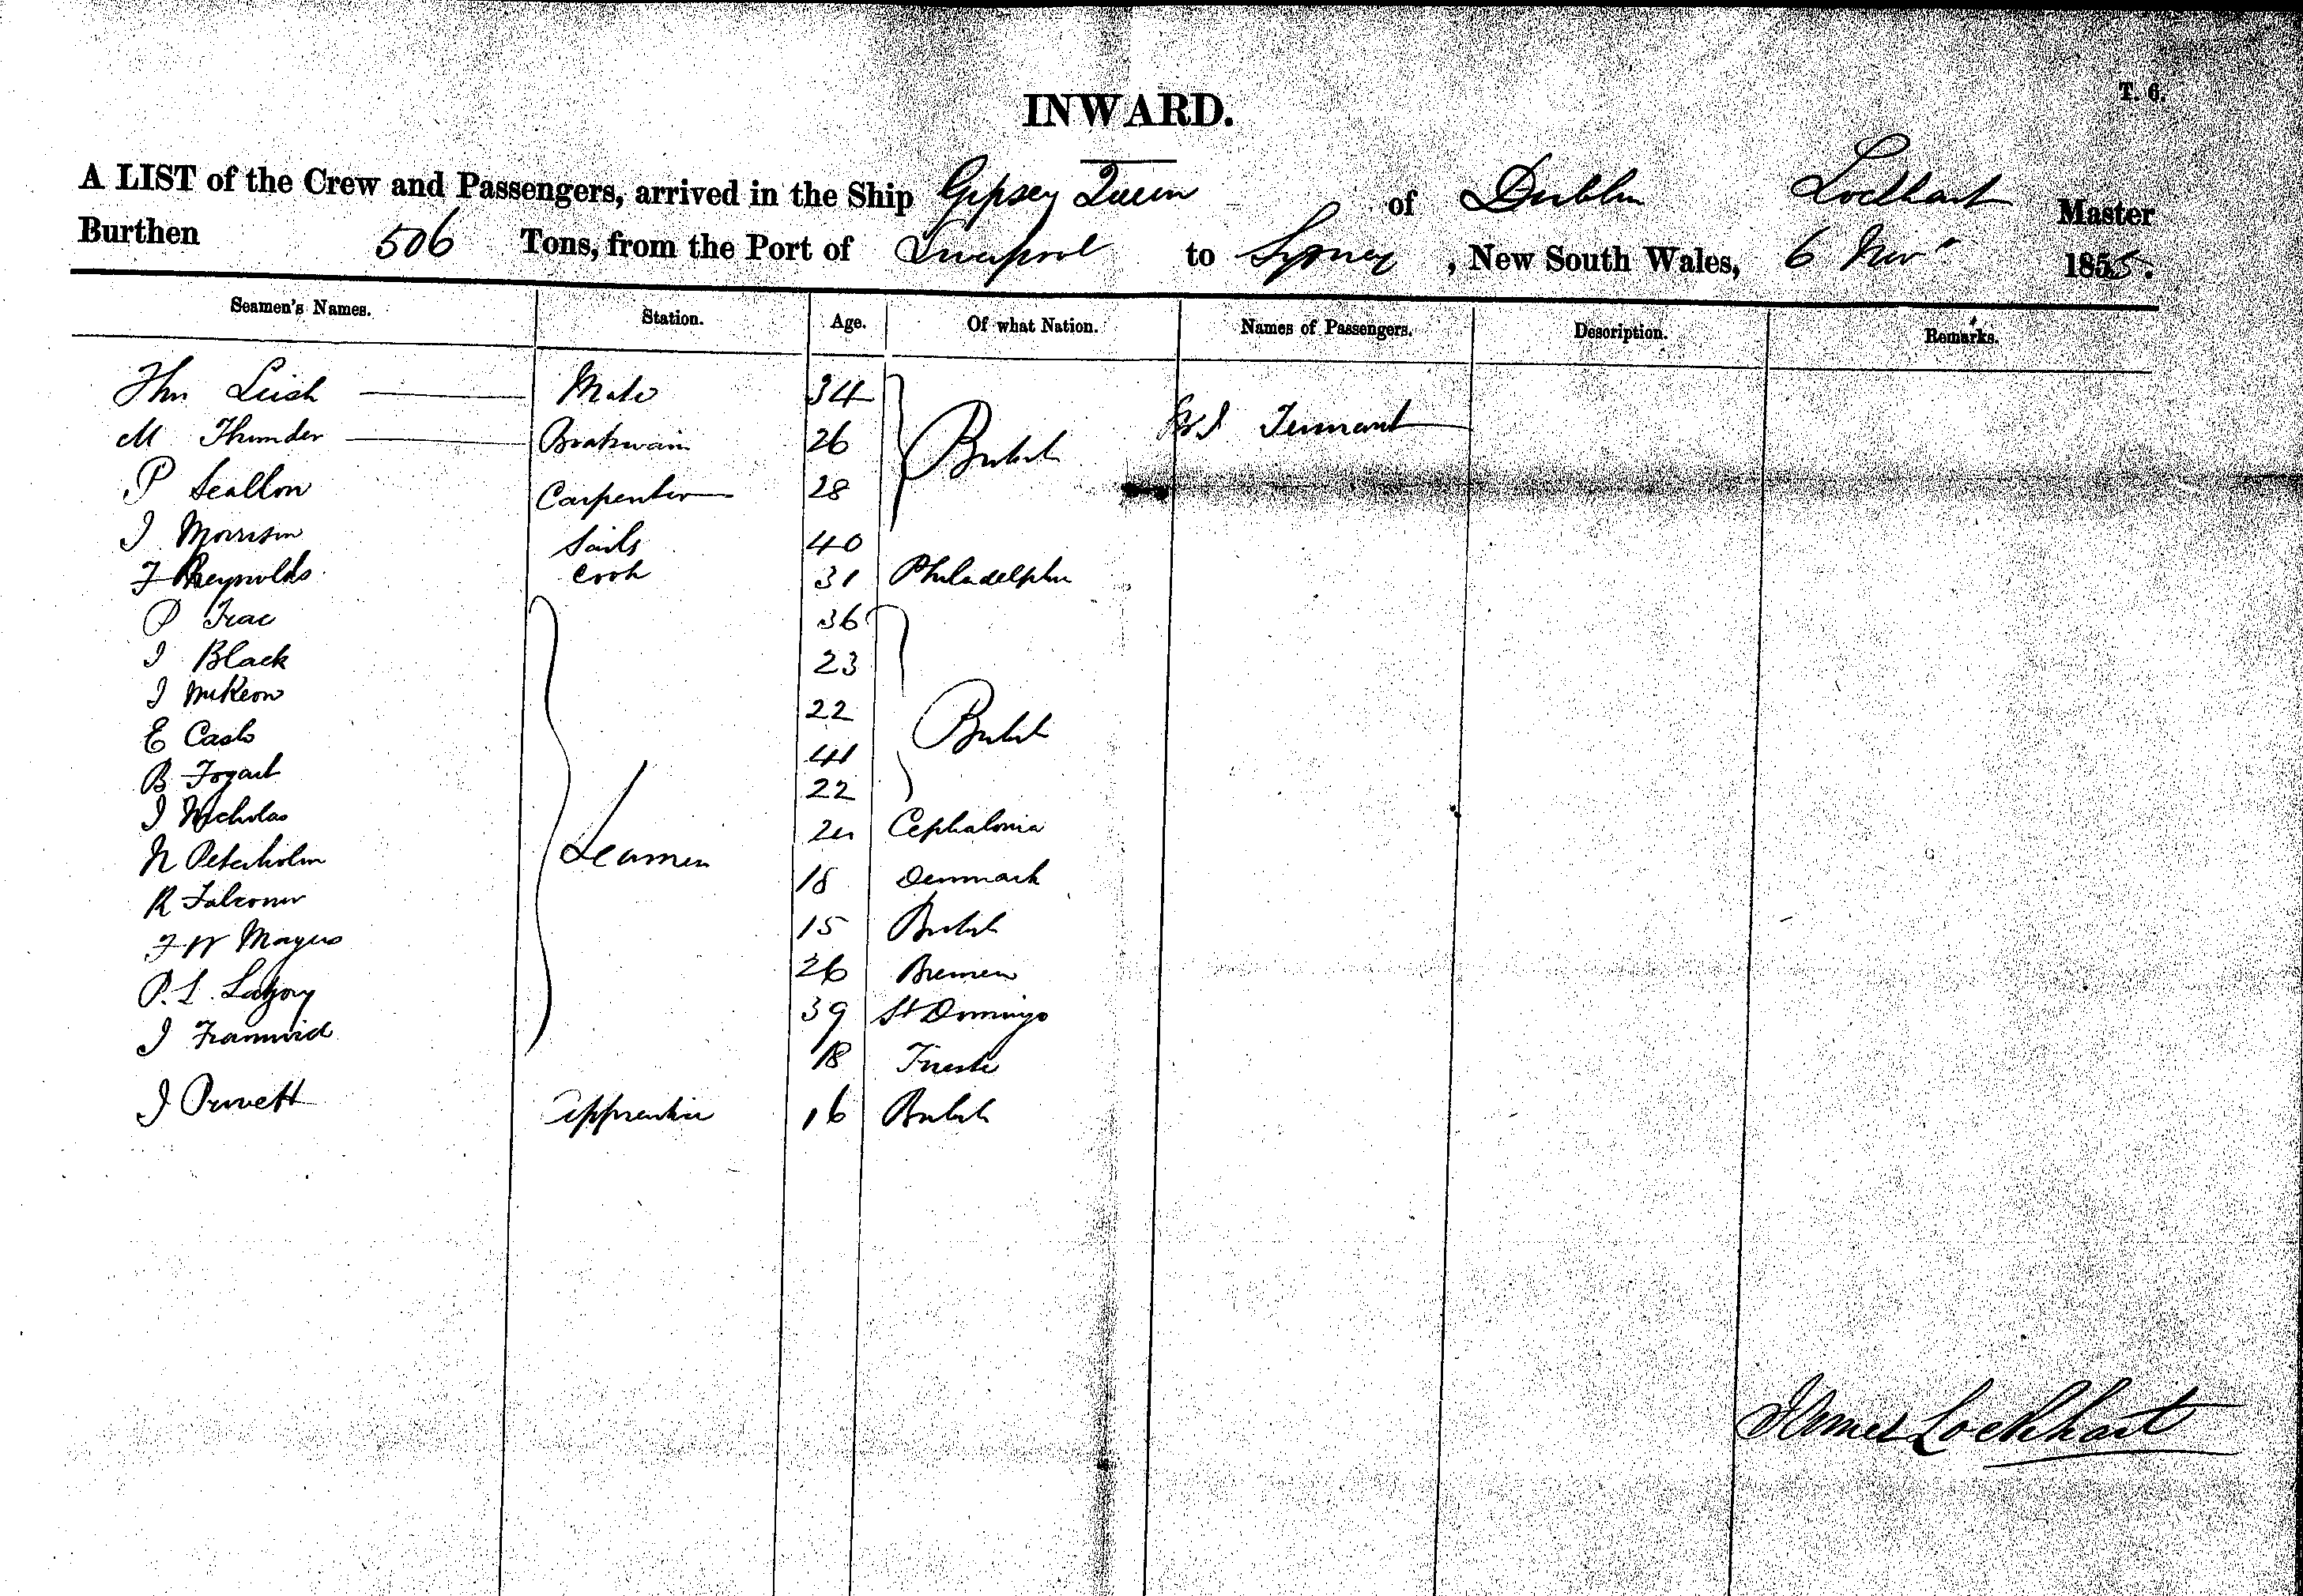 T. 6.
INWARD.
A LIST of the Crew and Passengers, arrived in the Ship Gipsey Queen of Dublin Lockhart Master
Burthen 506 Tons, from the Port of Liverpool to Sydney, New South Wales, 6 Nov 1855.
Seamen's Names. Station. Age. Of what Nation. Names of Passengers. Description. Remarks.
Leish Mate 34
M Thunder Boatswain 26 British Tennant
P Scallon Carpenter 28
J Morrison Sails 40
F Reynolds Cook 31 Philadelphia
P 36
J Black 23
J McKeon 22
E Cash 41 British
B Fogart 22
J Nicholas Cephalonia
N Peterholm Seamen 18 Denmark
R Falconer 15 British
F W Mayers 26 Bremen
P. L. 39 St Domingo
J 18 Trieste
J Prewett Apprentice 16 British
James Lockhart